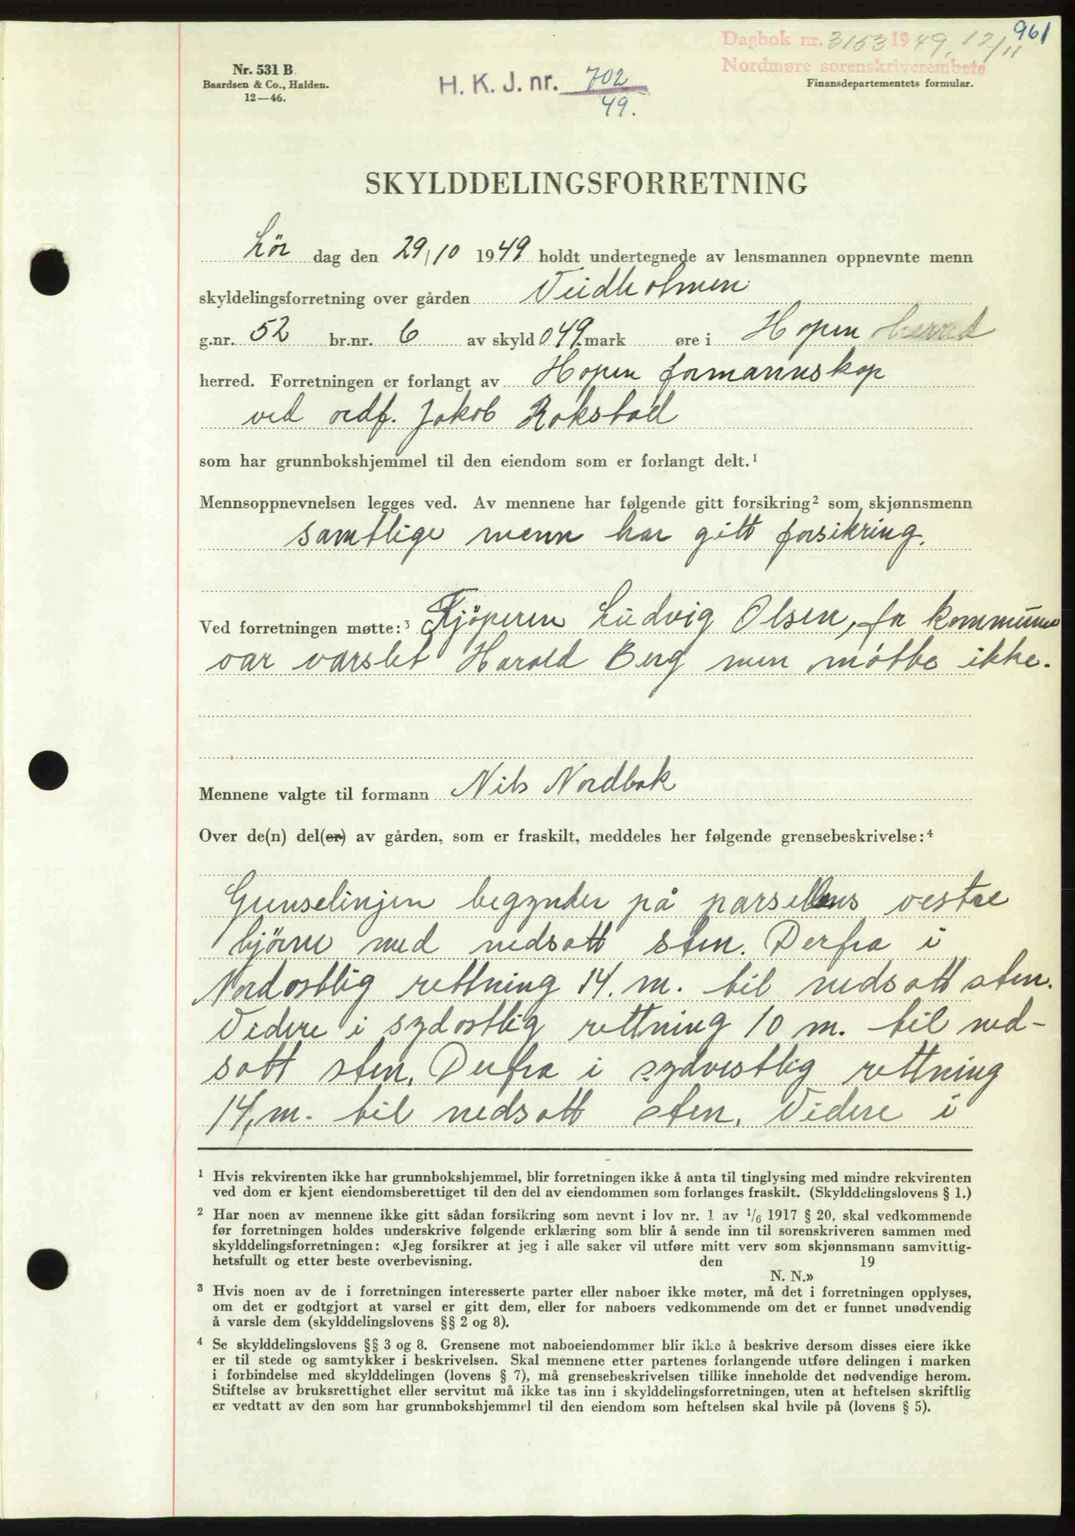 961
Dagbok nr. 3153 1949, 12/11
Nordmøre sorenskriverembete
Nr. 531 B.
Baardsen & Co., Halden.
12—46.
H. K. J. nr. 702
49.
Finansdepartementets formular.
SKYLDDELINGSFORRETNING
Lör dag den 29/10 1949 holdt undertegnede av lensmannen oppnevnte menn
skyldelingsforretning over gården Veidholmen
g.nr. 52 br.nr. 6 av skyld 049 mark øre i Hopen herred
herred. Forretningen er forlangt av Hopen formannskap
ved ordf. Jakob Rokstad
som har grunnbokshjemmel til den eiendom som er forlangt delt.¹
Mennsoppnevnelsen legges ved. Av mennene har følgende gitt forsikring² som skjønnsmenn
samtlige menn har gitt forsikring.
Ved forretningen møtte:³ Kjöperen Ludvig Olsen, for kommunen
var varslet Harald Berg men møtte ikke.
Mennene valgte til formann Nils Nordbak
Over de(n) del(er) av gården, som er fraskilt, meddeles her følgende grensebeskrivelse:⁴
Grenselinjen begynder på parsellens vestre
hjörne med nedsatt sten. Derfra i
Nordostlig rettning 14. m. til nedsatt sten.
Videre i sydostlig rettning 10 m. til ned-
satt sten. Derfra i sydvestlig rettning
14, m. til nedsatt sten. Videre i
¹ Hvis rekvirenten ikke har grunnbokshjemmel, blir forretningen ikke å anta til tinglysing med mindre rekvirenten
ved dom er kjent eiendomsberettiget til den del av eiendommen som forlanges fraskilt. (Skylddelingslovens § 1.)
² Har noen av mennene ikke gitt sådan forsikring som nevnt i lov nr. 1 av 1/6 1917 § 20, skal vedkommende
før forretningen holdes underskrive følgende erklæring som blir å sende inn til sorenskriveren sammen med
skylddelingsforretningen: «Jeg forsikrer at jeg i alle saker vil utføre mitt verv som skjønnsmann samvittig-
hetsfullt og etter beste overbevisning. den 19
N. N.»
³ Hvis noen av de i forretningen interesserte parter eller naboer ikke møter, må det i forretningen opplyses,
om det er godtgjort at varsel er gitt dem, eller for naboers vedkommende om det er funnet unødvendig
å varsle dem (skylddelingslovens §§ 2 og 8).
⁴ Se skylddelingslovens §§ 3 og 8. Grensene mot naboeiendommer blir ikke å beskrive dersom disses eiere ikke
er til stede og samtykker i beskrivelsen. Skal mennene etter partenes forlangende utføre delingen i marken
i forbindelse med skylddelingen (lovens § 7), må grensebeskrivelsen tillike inneholde det nødvendige herom.
Stiftelse av bruksrettighet eller servitut må ikke tas inn i skylddelingsforretningen, uten at heftelsen skriftlig
er vedtatt av den som har grunnbokshjemmel til den eiendom som heftelsen skal hvile på (lovens § 5).